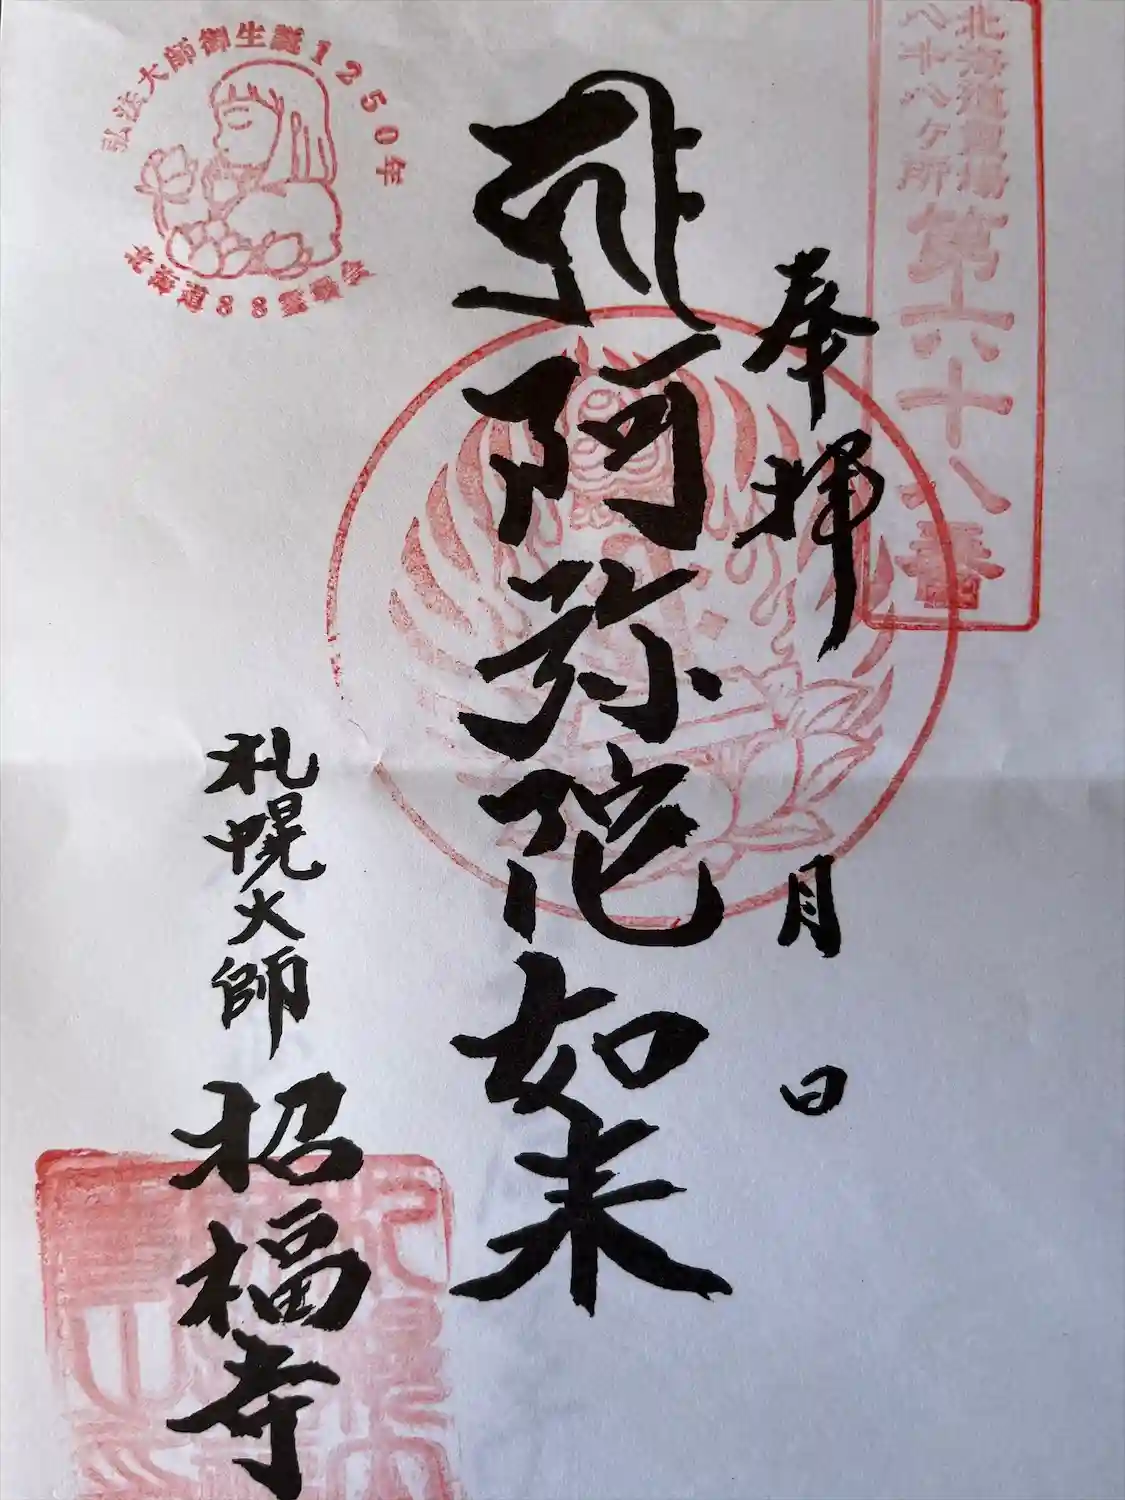 北海道霊場
八十八ヶ所
第六十八番
奉拝
月 日
阿弥陀如来
弘法大師御生誕1250年
北海道88霊場会
札幌大師
招福寺